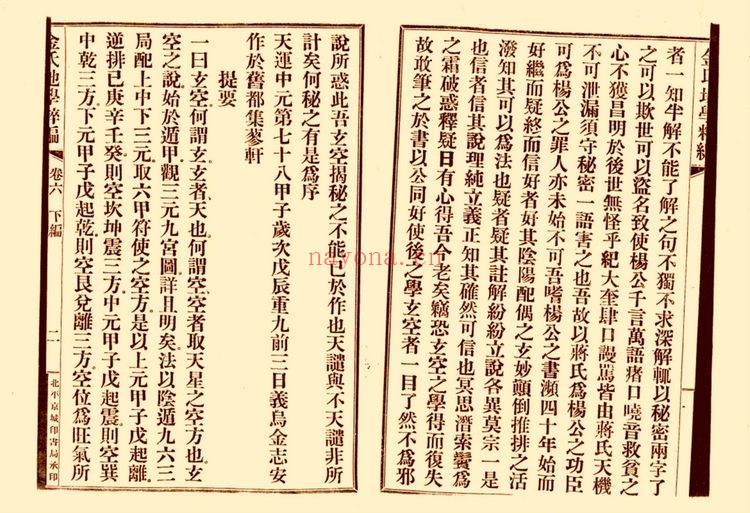 金氏地學粹編
者一知半解不能了解之句不獨不求深解輒以秘密兩字了
之可以欺世可以盜名致使楊公千言萬語瘏口嘵音救貧之
心不獲昌明於後世無怪乎紀大奎肆口謾罵皆由蔣氏天機
不可泄漏須守秘密一語害之也吾故以蔣氏爲楊公之功臣
可爲楊公之罪人亦未始不可吾嗜楊公之書瀕四十年始而
好繼而疑終而信好者好其陰陽配偶之玄妙顚倒推排之活
潑知其可以爲法也疑者疑其註解紛紛立說各異莫宗一是
也信者信其說理純立義正知其確然可信也冥思潛索鬢爲
之霜破惑釋疑日有心得吾今老矣竊恐玄空之學得而復失
故敢筆之於書以公同好使後之學玄空者一目了然不爲邪
說所惑此吾玄空揭秘之不能已於作也天譴與不天譴非所
計矣何秘之有是爲序
天運中元第七十八甲子歲次戊辰重九前三日義烏金志安
作於舊都集蓼軒
提要
一曰玄空何謂玄玄者天也何謂空空者取天星之空方也玄
空之說始於遁甲觀三元九宮圖詳且明矣法以陰遁九六三
局配上中下三元取六甲符使之空方是以上元甲子戊起離
逆排已庚辛壬癸則空坎坤震三方中元甲子戊起震則空巽
中乾三方下元甲子戊起乾則空艮兌離三方空位爲旺氣所
金氏地學粹編
卷六 下編
二
北平京城印書局承印
nayona.cn